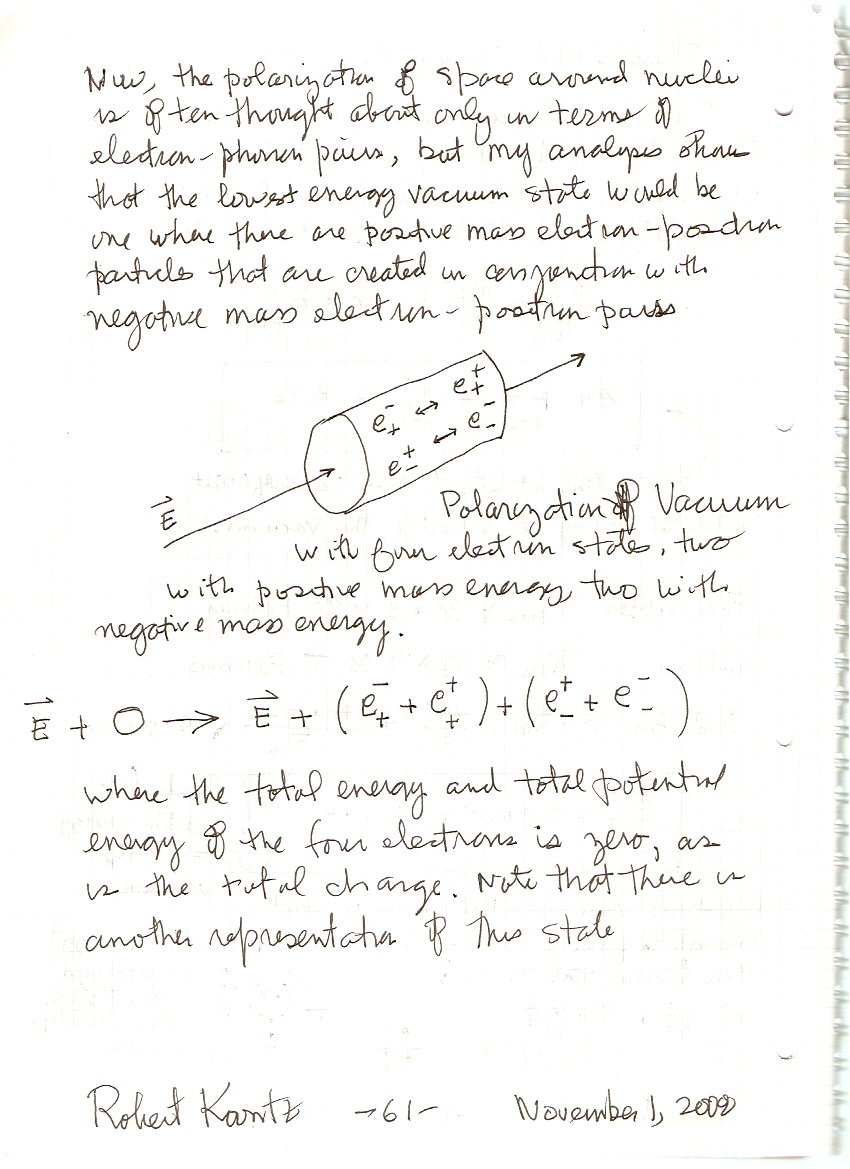 Now, the polarization of space around nuclei
is often thought about only in terms of
electron-phonon pairs, but my analysis shows
that the lowest energy vacuum state would be
one where there are positive mass electron-positron
particles that are created in conjunction with
negative mass electron-positron pairs
e₊⁻ ↔ e₊⁺
e₋⁺ ↔ e₋⁻
E⃗
Polarization of Vacuum
with four electron states, two
with positive mass energy, two with
negative mass energy.
E⃗ + O → E⃗ + (e₊⁻ + e₊⁺) + (e₋⁺ + e₋⁻)
where the total energy and total potential
energy of the four electrons is zero, as
is the total charge. Note that there is
another representation of this state
Robert Kantz -61- November 1, 2009